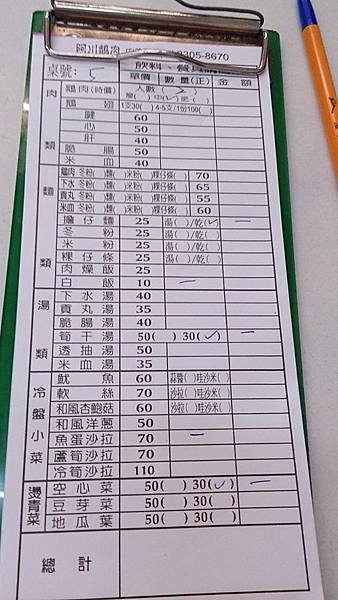 阿川鵝肉 2305-8670
桌號: 5 飲料、餐具
單價 數量(正) 金額
肉類
鵝肉(時價) 人數( 2 )
瘦( )中(✓)肥( )
鵝翅 1支30( ) 4-5支/1份100( )
腱 60
心 50
肝 40
脆腸 50
米血 40
麵類
鵝肉 冬粉( )麵( )米粉( )粿仔條( ) 70
下水 冬粉( )麵( )米粉( )粿仔條( ) 65
貢丸 冬粉( )麵( )米粉( )粿仔條( ) 55
米血 冬粉( )麵( )米粉( )粿仔條( ) 60
擔仔麵 25 湯( )/乾(✓) 一
冬粉 25 湯( )/乾( )
米粉 25 湯( )/乾( )
粿仔條 25 湯( )/乾( )
肉燥飯 25
白飯 10 一
湯類
下水湯 40
貢丸湯 35
脆腸湯 40
筍干湯 50( ) 30(✓) 一
透抽湯 50
米血湯 35
冷盤小菜
魷魚 60 蒜醬( )哇沙米( )
軟絲 70 沙拉( )哇沙米( )
和風杏鮑菇 60 沙拉( )哇沙米( )
和風洋蔥 50
魚蛋沙拉 70 一
蘆筍沙拉 70
冷筍沙拉 110
燙青菜
空心菜 50( ) 30(✓) 一
豆芽菜 50( ) 30( )
地瓜葉 50( ) 30( )
總計